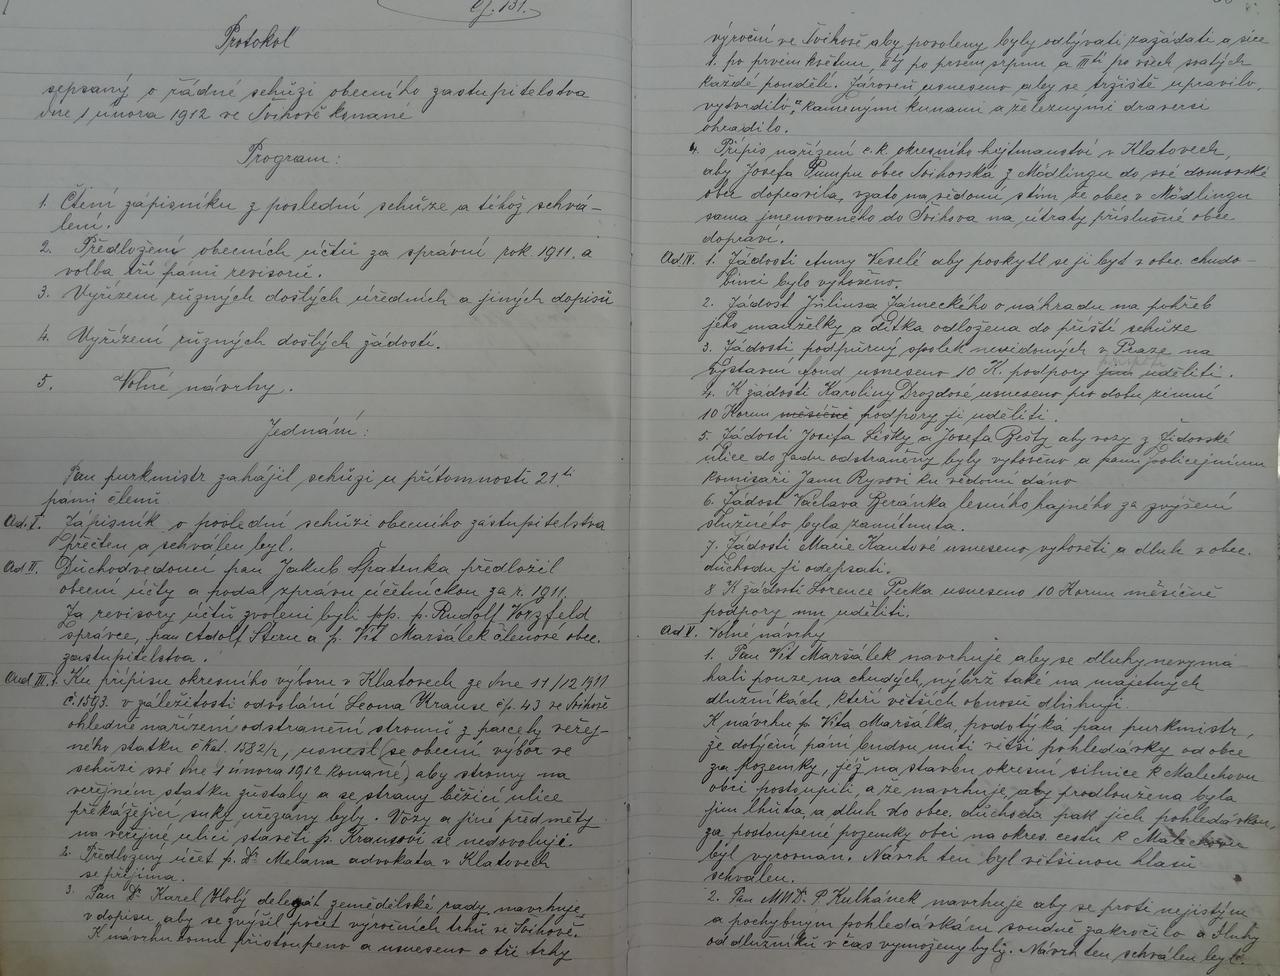 Čj. 131.
Protokol
sepsaný o řádné schůzi obecního zastupitelstva
dne 1 února 1912 ve Švihově konané
Program:
1. Čtení zápisníku z poslední schůze a téhož schvá-
lení.
2. Předložení obecních účtů za správní rok 1911. a
volba tří pánů revisorů.
3. Vyřízení různých došlých úředních a jiných dopisů
4. Vyřízení různých došlých žádostí.
5. Volné návrhy.
Jednání:
Pan purkmistr zahájil schůzi u přítomnosti 21ti
pánů členů
Ad. I. Zápisník o poslední schůzi obecního zastupitelstva
přečten a schválen byl.
Ad II. Důchodvedoucí pan Jakub Špatenka předložil
obecní účty a podal zprávu účetnickou za r. 1911.
Za revisory účtů zvoleni byli pp. p. Rudolf Vorzfeld
správce, pan Adolf Stern a p. Vít Maršálek členové obec.
zastupitelstva.
Ad III. 1. Ku přípisu okresního výboru v Klatovech ze dne 11/12 1911
č. 1593. v záležitosti odvolání Leona Krause čp. 43 ve Švihově
ohledně nařízení odstranění stromů z parcely veřej-
ného statku č kat. 1582/1, usnesl (se obecní výbor ve
schůzi své dne 1 února 1912 konané) aby stromy na
veřejném statku zůstaly a se strany běžící ulice
překážející suky uřezány byly. Vozy a jiné předměty
na veřejné ulici stavěti p. Krausovi se nedovoluje.
2. Předložený účet p. Dr Melana advokata v Klatovech
se přijímá.
3. Pan Dr. Karel Holý delegát zemědělské rady navrhuje
v dopisu, aby se zvýšil počet výročních trhů ve Švihově.
K návrhu tomu přistoupeno a usneseno o tři trhy
výroční ve Švihově aby povoleny byly odbývati zažádati a sice
I. po prvém květnu, IIhý po prvém srpnu a IIItí po všech svatých
každé pondělí. Zároveň usneseno aby se tržiště upravilo,
vytvrdilo, kamenými kunami a železnými draversi
ohradilo.
4. Přípis nařízení c.k. okresního hejtmanství v Klatovech,
aby Josefa Pumpu obec Švihovská z Mödlingu do své domovské
obce dopravila, vzato na vědomí s tím, že obec v Mödlingu
sama jmenovaného do Švihova na útraty příslušné obce
dopraví.
Ad IV. 1. Žádosti Anny Veselé aby poskytl se jí byt v obec. chudo-
binci bylo vyhověno.
2. Žádost Juliusa Zámeckého o náhradu na pohřeb
jeho manželky a dítka odložena do příští schůze
3. Žádosti podpůrný spolek nevidomých v Praze na
výstavní fond usneseno 10 K. podpory uděliti.
4. K žádosti Karoliny Drozdové usneseno pro dobu zimní
10 Korun měsíčně podpory jí uděliti.
5. Žádosti Josefa Lišky a Josefa Bešty aby vozy z Židovské
ulice do zadu odstraněny byly vyhověno a panu policejnímu
komisaři Janu Rysovi ku vědomí dáno
6. Žádost Václava Beránka lesního hajného za zvýšení
služného byla zamítnuta.
7. Žádosti Marie Kantové usneseno vyhověti a dluh v obec.
důchodu jí odepsati.
8 K žádosti Lorence Perka usneseno 10 Korun měsíčně
podpory mu uděliti.
Ad V. Volné návrhy
1. Pan Vít Maršálek navrhuje aby se dluhy nevymá-
hali pouze na chudých, nýbrž také na majetných
dlužníkách, kteří větších obnosů dluhují.
K návrhu p. Víta Maršálka, podotýká pan purkmistr,
že dotyční páni budou míti větší pohledávky od obce
za pozemky, jež na stavbu okresní silnice k Malechovu
obci postoupili, a že navrhuje, aby prodloužena byla
jim lhůta, a dluh do obec. důchodu pak jich pohledávkou,
za postoupené pozemky obci na okres. cestu k Malechovu
byl vyrovnán. Návrh ten byl většinou hlasů
schválen.
2. Pan MUDr. P. Kulhánek navrhuje aby se proti nejistým
a pochybným pohledávkám soudně zakročilo a dluhy
od dlužníků v čas vymoženy byly. Návrh ten schválen byl.